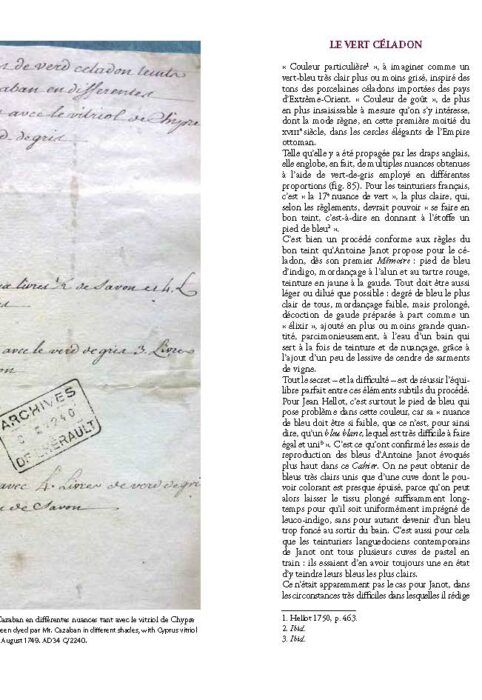 de verd celadon teints
Cazaban en differentes
avec le vitriol de Chypre
de gris
livres 1/2 de Savon et 4 L
avec le verd de gris 3. Livres
ARCHIVES
C 2240
DE L'HERAULT
avec 4. Livres de verd de gris
de Savon
Cazaban en différentes nuances tant avec le vitriol de Chypre
been dyed par Mr. Cazaban in different shades, with Cyprus vitriol
August 1749. AD34 C/2240.
LE VERT CÉLADON
« Couleur particulière¹ », à imaginer comme un
vert-bleu très clair plus ou moins grisé, inspiré des
tons des porcelaines céladons importées des pays
d'Extrême-Orient. « Couleur de goût », de plus
en plus insaisissable à mesure qu'on s'y intéresse,
dont la mode règne, en cette première moitié du
XVIIIᵉ siècle, dans les cercles élégants de l'Empire
ottoman.
Telle qu'elle y a été propagée par les draps anglais,
elle englobe, en fait, de multiples nuances obtenues
à l'aide de vert-de-gris employé en différentes
proportions (fig. 85). Pour les teinturiers français,
c'est « la 17ᵉ nuance de vert », la plus claire, qui,
selon les règlements, devrait pouvoir « se faire en
bon teint, c'est-à-dire en donnant à l'étoffe un
pied de bleu² ».
C'est bien un procédé conforme aux règles du
bon teint qu'Antoine Janot propose pour le cé-
ladon, dès son premier Mémoire : pied de bleu
d'indigo, mordançage à l'alun et au tartre rouge,
teinture en jaune à la gaude. Tout doit être aussi
léger ou dilué que possible : degré de bleu le plus
clair de tous, mordançage faible, mais prolongé,
décoction de gaude préparée à part comme un
« élixir », ajouté en plus ou moins grande quan-
tité, parcimonieusement, à l'eau d'un bain qui
sert à la fois de teinture et de nuançage, grâce à
l'ajout d'un peu de lessive de cendre de sarments
de vigne.
Tout le secret – et la difficulté – est de réussir l'équi-
libre parfait entre ces éléments subtils du procédé.
Pour Jean Hellot, c'est surtout le pied de bleu qui
pose problème dans cette couleur, car sa « nuance
de bleu doit être si faible, que ce n'est, pour ainsi
dire, qu'un bleu blanc, lequel est très difficile à faire
égal et uni³ ». C'est ce qu'ont confirmé les essais de
reproduction des bleus d'Antoine Janot évoqués
plus haut dans ce Cahier. On ne peut obtenir de
bleus très clairs unis que d'une cuve dont le pou-
voir colorant est presque épuisé, parce qu'on peut
alors laisser le tissu plongé suffisamment long-
temps pour qu'il soit uniformément imprégné de
leuco-indigo, sans pour autant devenir d'un bleu
trop foncé au sortir du bain. C'est aussi pour cela
que les teinturiers languedociens contemporains
de Janot ont tous plusieurs cuves de pastel en
train : ils essaient d'en avoir toujours une en état
d'y teindre leurs bleus les plus clairs.
Ce n'était apparemment pas le cas pour Janot, dans
les circonstances très difficiles dans lesquelles il rédige
1. Hellot 1750, p. 463.
2. Ibid.
3. Ibid.